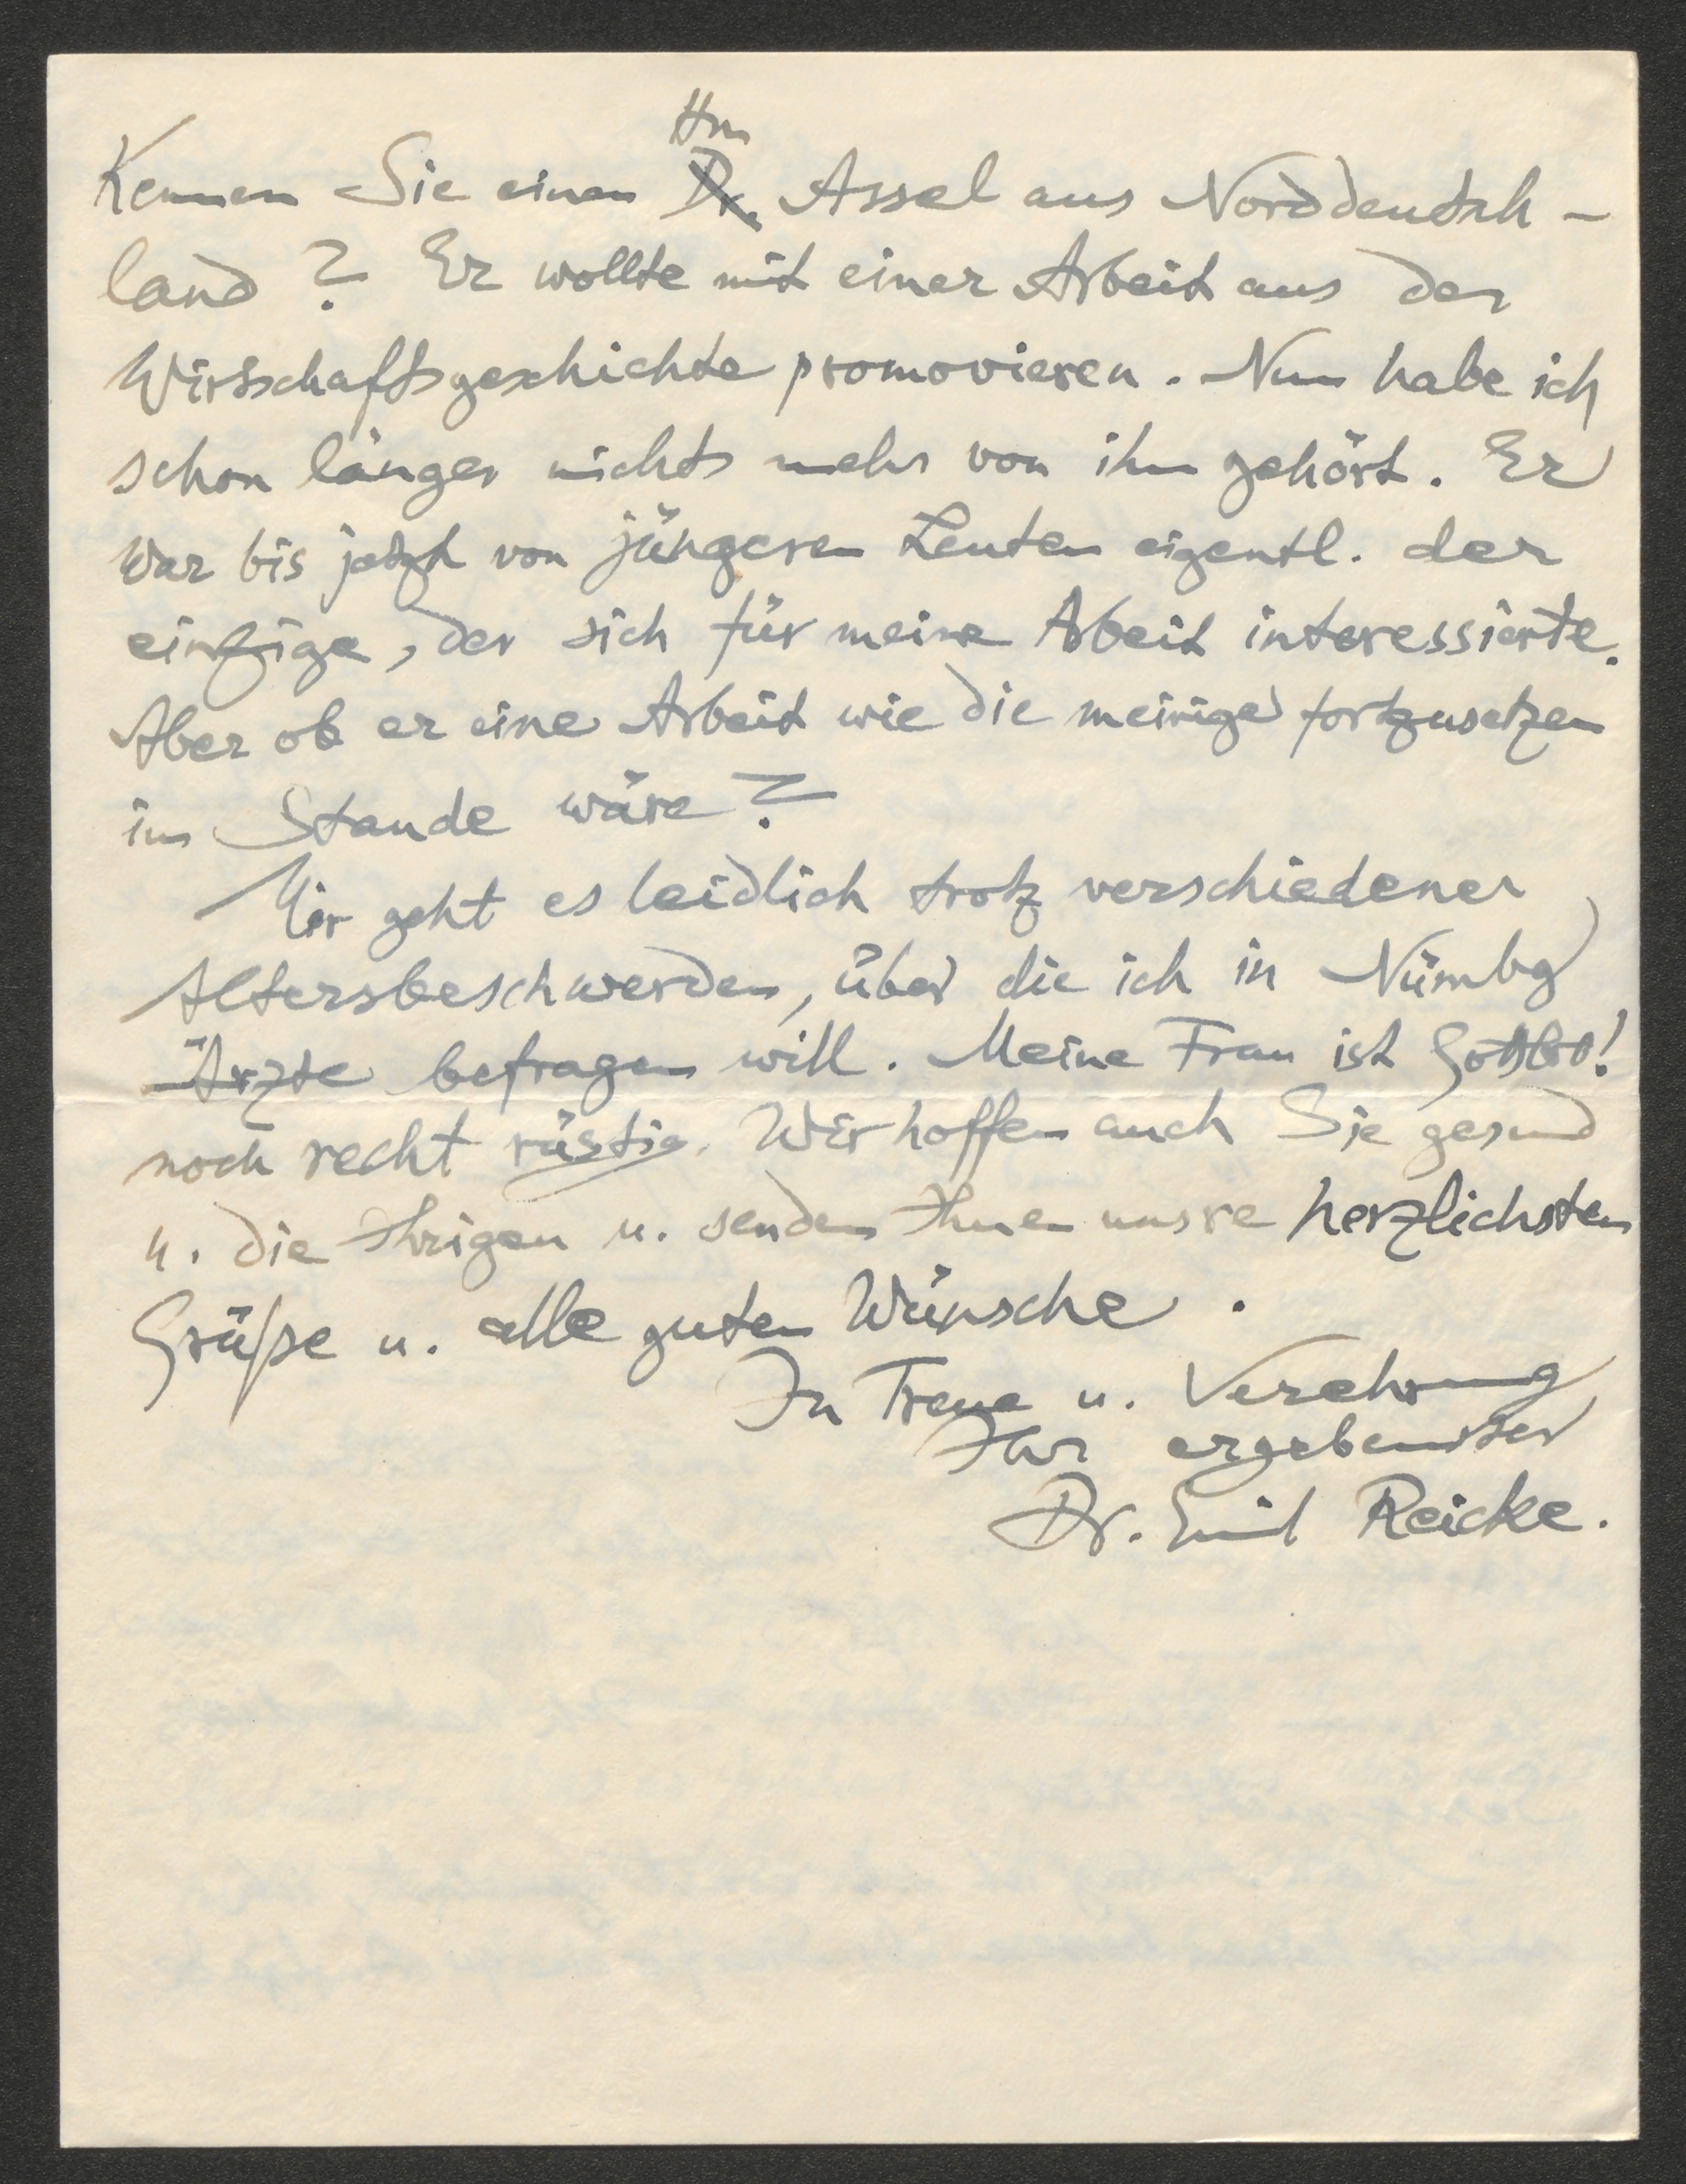 Hrn
Kennen Sie einen Dr. Assel aus Norddeutsch-
land? Er wollte mit einer Arbeit aus der
Wirtschaftsgeschichte promovieren. Nun habe ich
schon länger nichts mehr von ihm gehört. Er
war bis jetzt von jüngeren Leuten eigentl. der
einzige, der sich für meine Arbeit interessierte.
Aber ob er eine Arbeit wie die meinige fortzusetzen
im Stande wäre?
Mir geht es leidlich trotz verschiedener
Altersbeschwerden, über die ich in Nürnbg
Ärzte befragen will. Meine Frau ist Gottlob!
noch recht rüstig. Wir hoffen auch Sie gesund
u. die Ihrigen u. senden Ihnen unsre herzlichsten
Grüße u. alle guten Wünsche.
In Treue u. Verehrung
Ihr ergebenster
Dr. Emil Reicke.